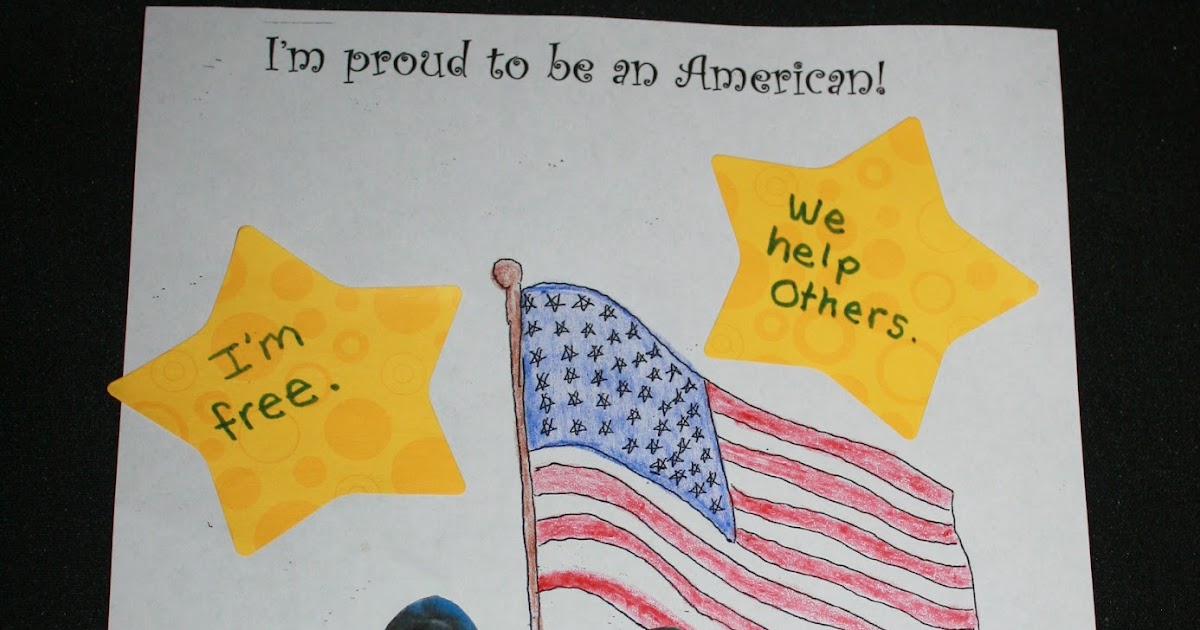 I'm proud to be an American!
We
help
Others.
I'm
free.